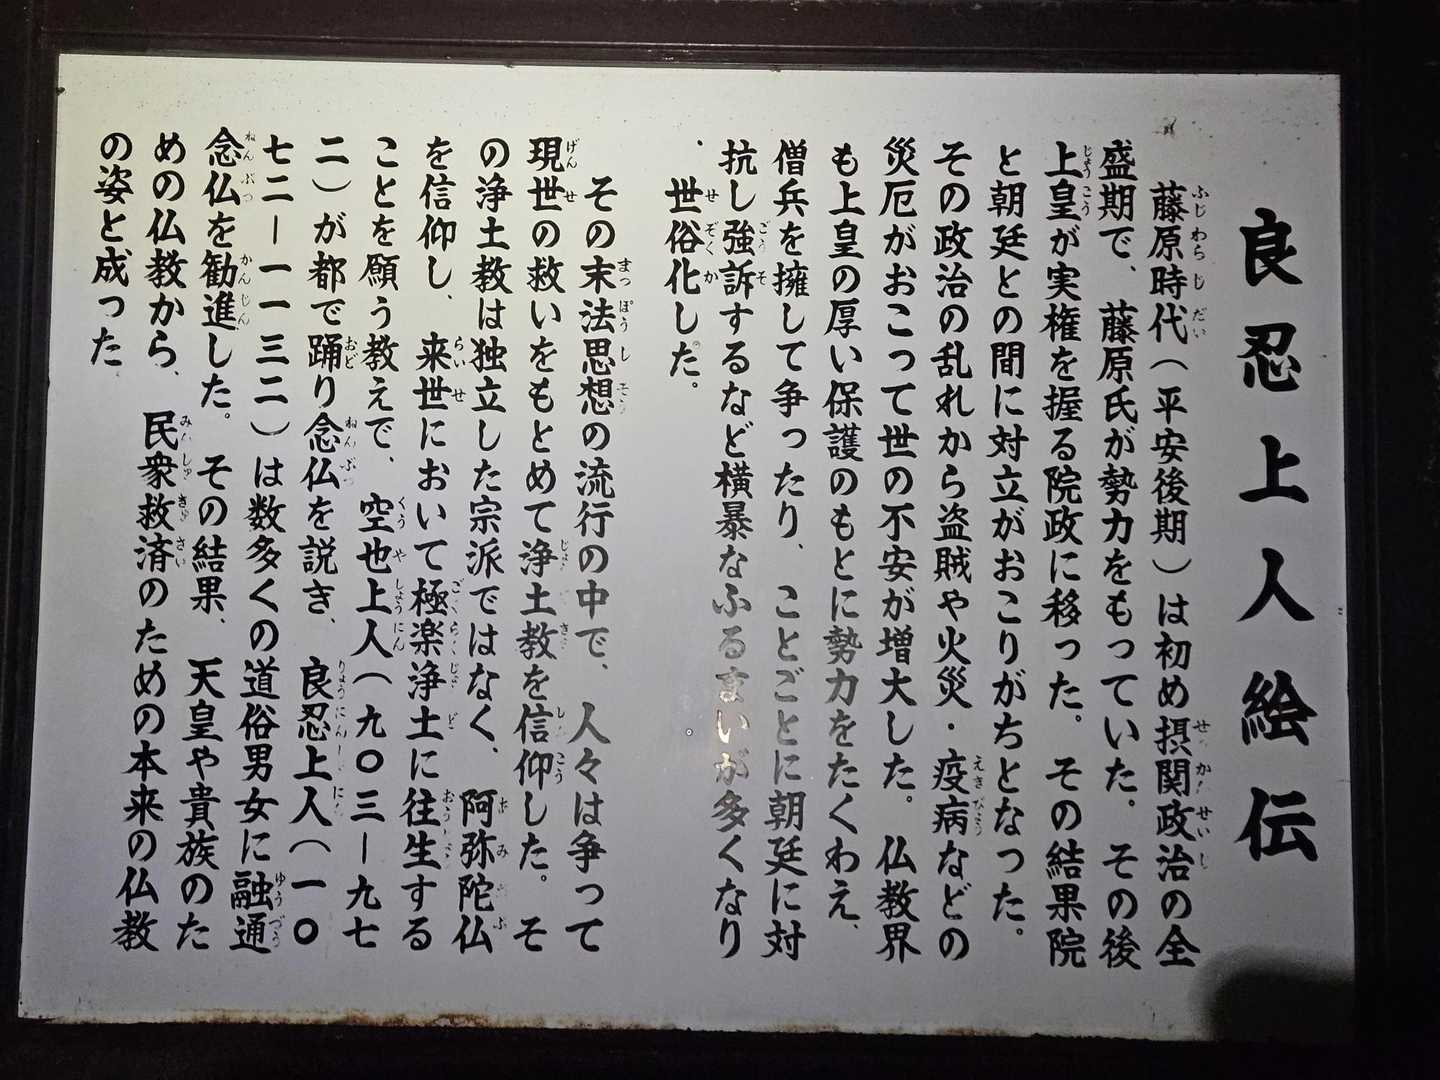 良忍上人絵伝
藤原時代（平安後期）は初め摂関政治の全
盛期で、藤原氏が勢力をもっていた。その後
上皇が実権を握る院政に移った。その結果院
と朝廷との間に対立がおこりがちとなった。
その政治の乱れから盗賊や火災・疫病などの
災厄がおこって世の不安が増大した。仏教界
も上皇の厚い保護のもとに勢力をたくわえ、
僧兵を擁して争ったり、ことごとに朝廷に対
抗し強訴するなど横暴なふるまいが多くなり
、世俗化した。
その末法思想の流行の中で、人々は争って
現世の救いをもとめて浄土教を信仰した。そ
の浄土教は独立した宗派ではなく、阿弥陀仏
を信仰し、来世において極楽浄土に往生する
ことを願う教えで、空也上人（九〇三ー九七
二）が都で踊り念仏を説き、良忍上人（一〇
七二ー一一三二）は数多くの道俗男女に融通
念仏を勧進した。その結果、天皇や貴族のた
めの仏教から、民衆救済のための本来の仏教
の姿と成った